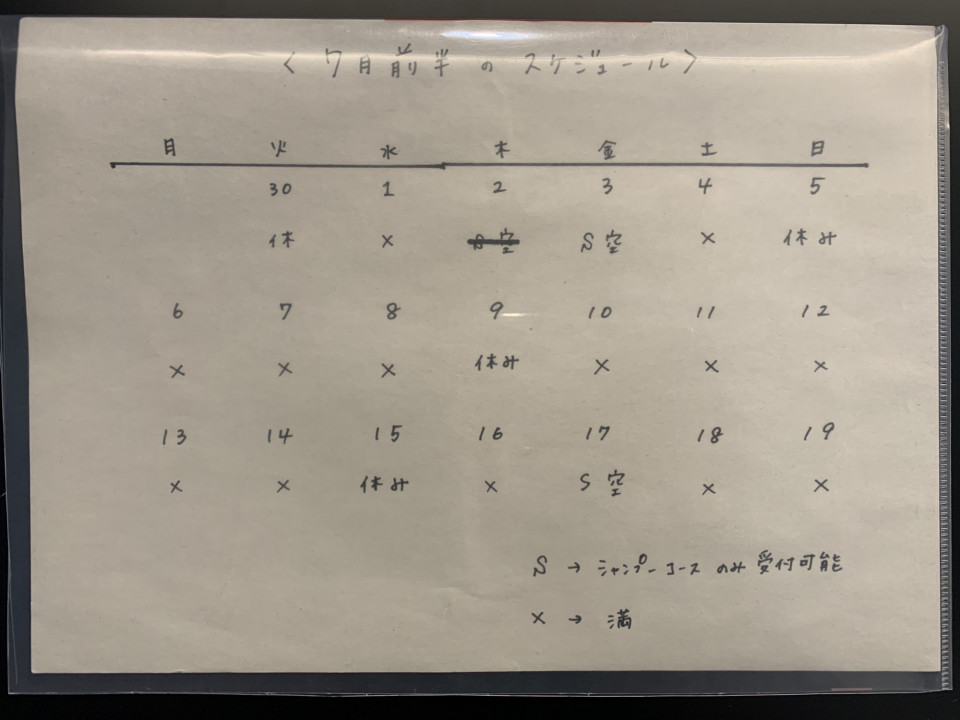 〈 7月前半 の スケジュール 〉
月 火 水 木 金 土 日
30 1 2 3 4 5
休 × S空 S空 × 休み
6 7 8 9 10 11 12
× × × 休み × × ×
13 14 15 16 17 18 19
× × 休み × S空 × ×
S → シャンプーコース のみ 受付可能
× → 満